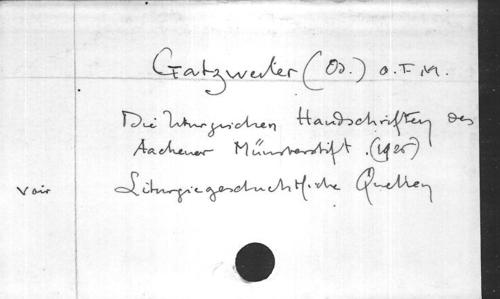 Gatzweiler (Od.) O.F.M.
Die liturgischen Handschriften des
Aachener Münsterstift. (1926)
voir Liturgiegeschichtliche Quellen